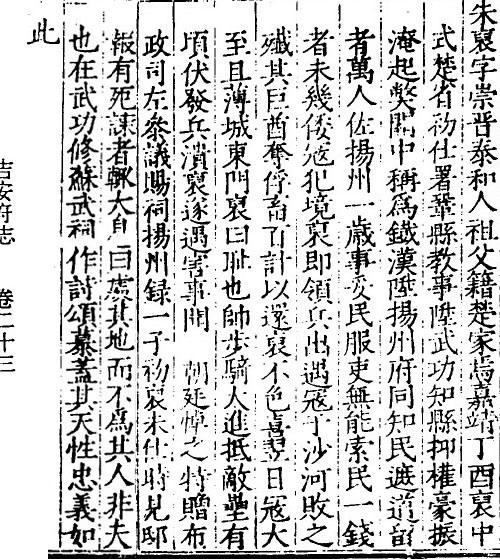 朱裒字崇晋泰和人祖父籍楚家焉嘉靖丁酉裒中
式楚省初仕署鞏縣教事陞武功知縣抑權豪振
淹起獘關中稱爲鐵漢陞揚州府同知民遮道留
者萬人佐揚州一歲事安民服吏無能索民一錢
者未幾倭寇犯境裒即領兵出遇寇于沙河敗之
殲其巨酋奪俘畜百計以還裒不色喜翌日寇大
至且薄城東門裒曰耻也帥步騎人進抵敵壘有
頃伏發兵潰裒遂遇害事聞 朝廷悼之特贈布
政司左參議賜祠揚州録一子初裒未仕時見邸
報有死諫者輒大自 曰處其地而不爲其人非夫
也在武功修蘇武祠 作詩頌慕蓋其天性忠義如
此
吉安府志 卷二十三